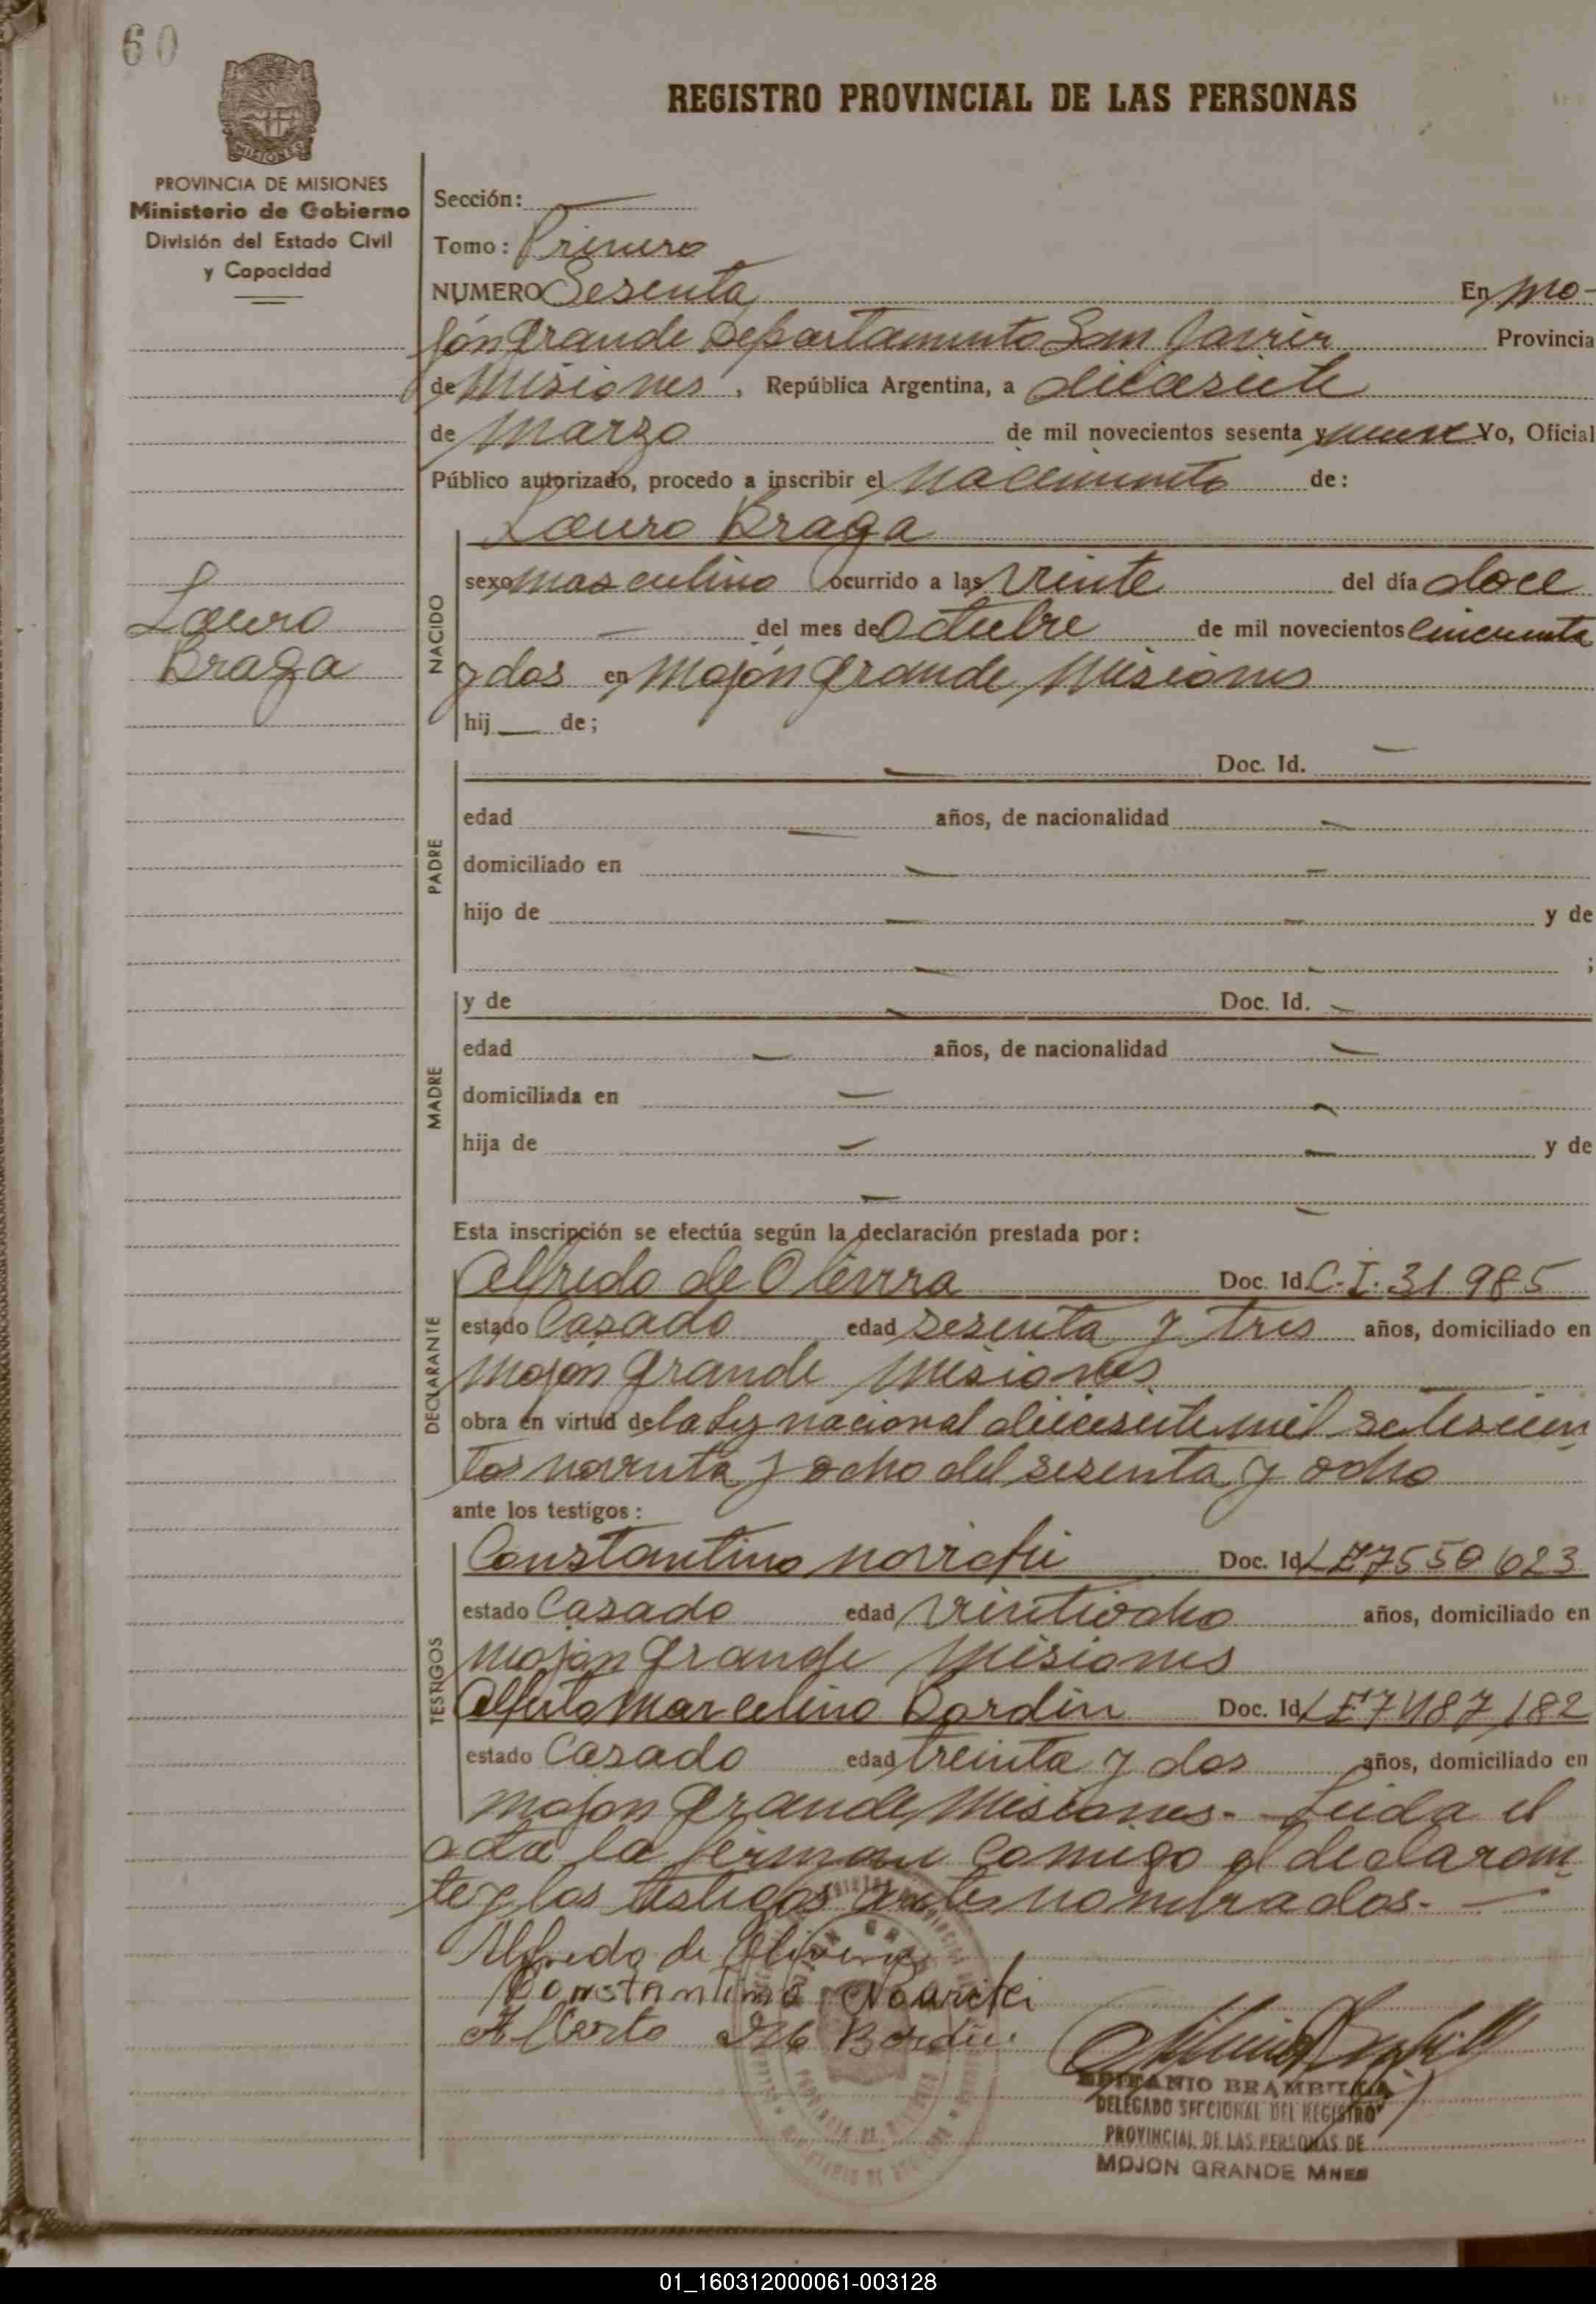 60
REGISTRO PROVINCIAL DE LAS PERSONAS
MISIONES
PROVINCIA DE MISIONES
Ministerio de Gobierno
División del Estado Civil
y Capacidad
Sección:
Tomo: Primero
NUMERO Sesenta En Mo-
jón Grande Departamento San Javier Provincia
de Misiones, República Argentina, a diecisiete
de Marzo de mil novecientos sesenta y nueve Yo, Oficial
Público autorizado, procedo a inscribir el Nacimiento de:
Lauro Braga
sexo masculino ocurrido a las veinte del día doce
Lauro
Braga
NACIDO
del mes de Octubre de mil novecientos cincuenta
y dos en Mojón Grande Misiones
hij de;
Doc. Id.
PADRE
edad años, de nacionalidad
domiciliado en
hijo de y de
;
MADRE
y de Doc. Id.
edad años, de nacionalidad
domiciliada en
hija de y de
Esta inscripción se efectúa según la declaración prestada por:
DECLARANTE
Alfredo de Oliveira Doc. Id. C.I. 31 985
estado Casado edad sesenta y tres años, domiciliado en
Mojón Grande Misiones
obra en virtud de la Ley nacional diecisiete mil setescien
tos noventa y ocho del sesenta y ocho
ante los testigos:
TESTIGOS
Constantino Doc. Id. LE 7550 623
estado Casado edad veintiocho años, domiciliado en
Mojón Grande Misiones
Marcelino Bordin Doc. Id. LE 7487 182
estado Casado edad treinta y dos años, domiciliado en
Mojon Grande Misiones.- Leida el
acta la firman comigo el declaran
te y los testigos antes nombrados.-
Alfredo de Oliveira
Constantino
Alberto M Bordin
EPIFANIO BRAMBILLA
DELEGADO SECCIONAL DEL REGISTRO
PROVINCIAL DE LAS PERSONAS DE
MOJON GRANDE MNES
01_160312000061-003128